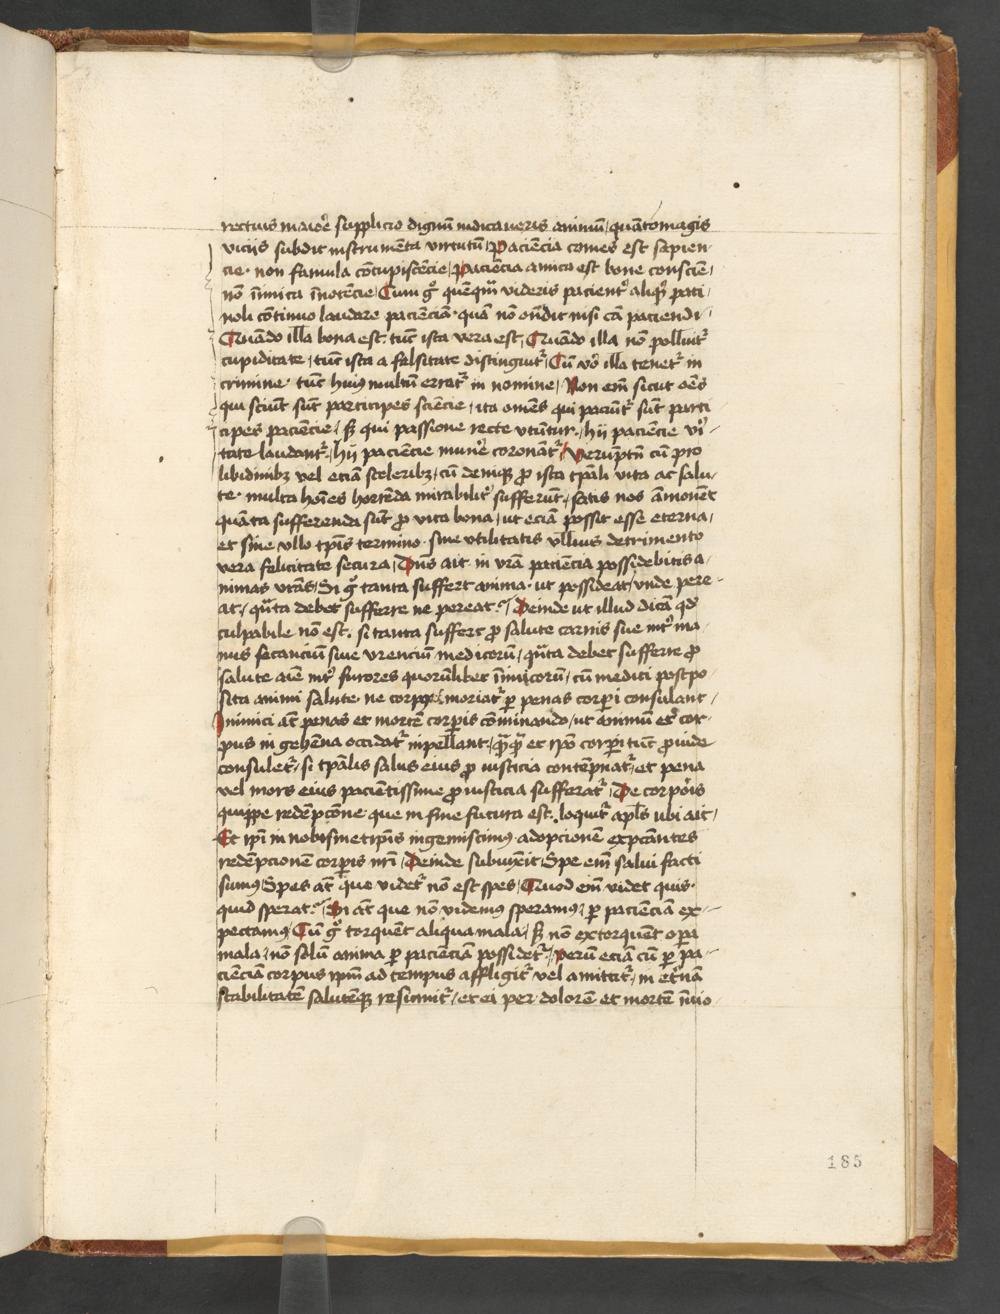 rectius maiore supplicio dignū iudicaueris animū / quātomagis
viciis subdit instrumēta virtutū / Paciēcia comes est sapien
cie · non famula cōcupiscēcie / Paciēcia amica est bone consciēcie /
nō inimica īnocēcie / Cum gͦ quēqm̄ videris pacient᷒ aliqͥd pati /
noli cōtinuo laudare paciēciā · quā nō ondit nisi cā paciendi /
Quādo illa bona est · tūc ista vera est / Quādo illa nō polluit᷒
cupiditate / tūc ista a falsitate distinguit᷒ / Cū vͦo illa tenet᷒ in
crimine · tūc huiꝰ multū errat᷒ in nomine / Non em̄ sicut oēs
qui sciūt sūt participes sciēcie / ita omēs qui paciūt᷒ sūt parti
cipes paciēcie / sꝫ qui passione recte vtūtur / hij paciēcie v̄i
tate laudant᷒ / hij paciēcie mun᷒e coronāt᷒ / Verūptn̄ cū pro
libidinibꝫ vel eciā sceleribꝫ / cū deniqꝫ ꝓ ista tꝑali vita ac salu
te · multa hoīes horrēda mirabilit᷒ sufferūt / satis nos āmonēt
quāta sufferenda sūt ꝓ vita bona / ut eciā possit esse eterna /
et sine vllo tꝑis termino · sine vtilitatis vllius detrimento
vera felicitate secura / Dn̄s ait in vrā paciēcia possidebitis a
nimas vrās / Si gͦ tanta suffert anima · ut possideat / vnde pere
at / qͣnta debet sufferre ne pereat ? / Deinde ut illud dicā qd
culpabile nō est · si tanta suffert ꝓ salute carnis sue int᷒ ma
nus secanciū siue vrenciū medicorū / qͣnta debet sufferre ꝓ
salute aīe int᷒ furores quorūlibet īnimicorū / cū medici postpo
sita animi salute · ne corpꝰ moriat᷒ ꝑ penas corꝑi consulant /
Inimici aūt penas et mortē corꝑis cōminando / ut animū et cor
pus in gehēna occidat᷒ inpellant / qͣꝙͣ et ip̄o corꝑi tūc ꝓuide
consulet᷒ / si tꝑalis salus eius ꝓ iusticia contēpnat᷒ / et pena
vel mors eius pacientissime ꝓ iusticia sufferat᷒ / De corꝑis
quippe redēpcōne · que in fine futura est · loquit᷒ apl̄s ubi ait /
Et ip̄i in nobismetip̄is ingemiscimꝰ · adopcionē expcātes
redēpcionē corꝑis nr̄i / Deinde subiūxit / Spe em̄ salui facti
sumꝰ / Spes aūt que videt᷒ nō est spes / Quod em̄ videt quis ·
quid sperat ? / Si aūt que nō videmꝰ speramꝰ / ꝑ paciēciā ex
pectamꝰ / Cū gͦ torquēt aliqua mala / sꝫ nō extorquēt opera
mala / nō solū anima ꝑ paciēciā possidet᷒ / verū eciā cū ꝑ pa
ciēciā corpus ip̄m ad tempus affligit᷒ vel amittit᷒ / in et᷒nā
stabilitatē salutēqꝫ resumit᷒ / et ei per dolorē et mortē īuio
185